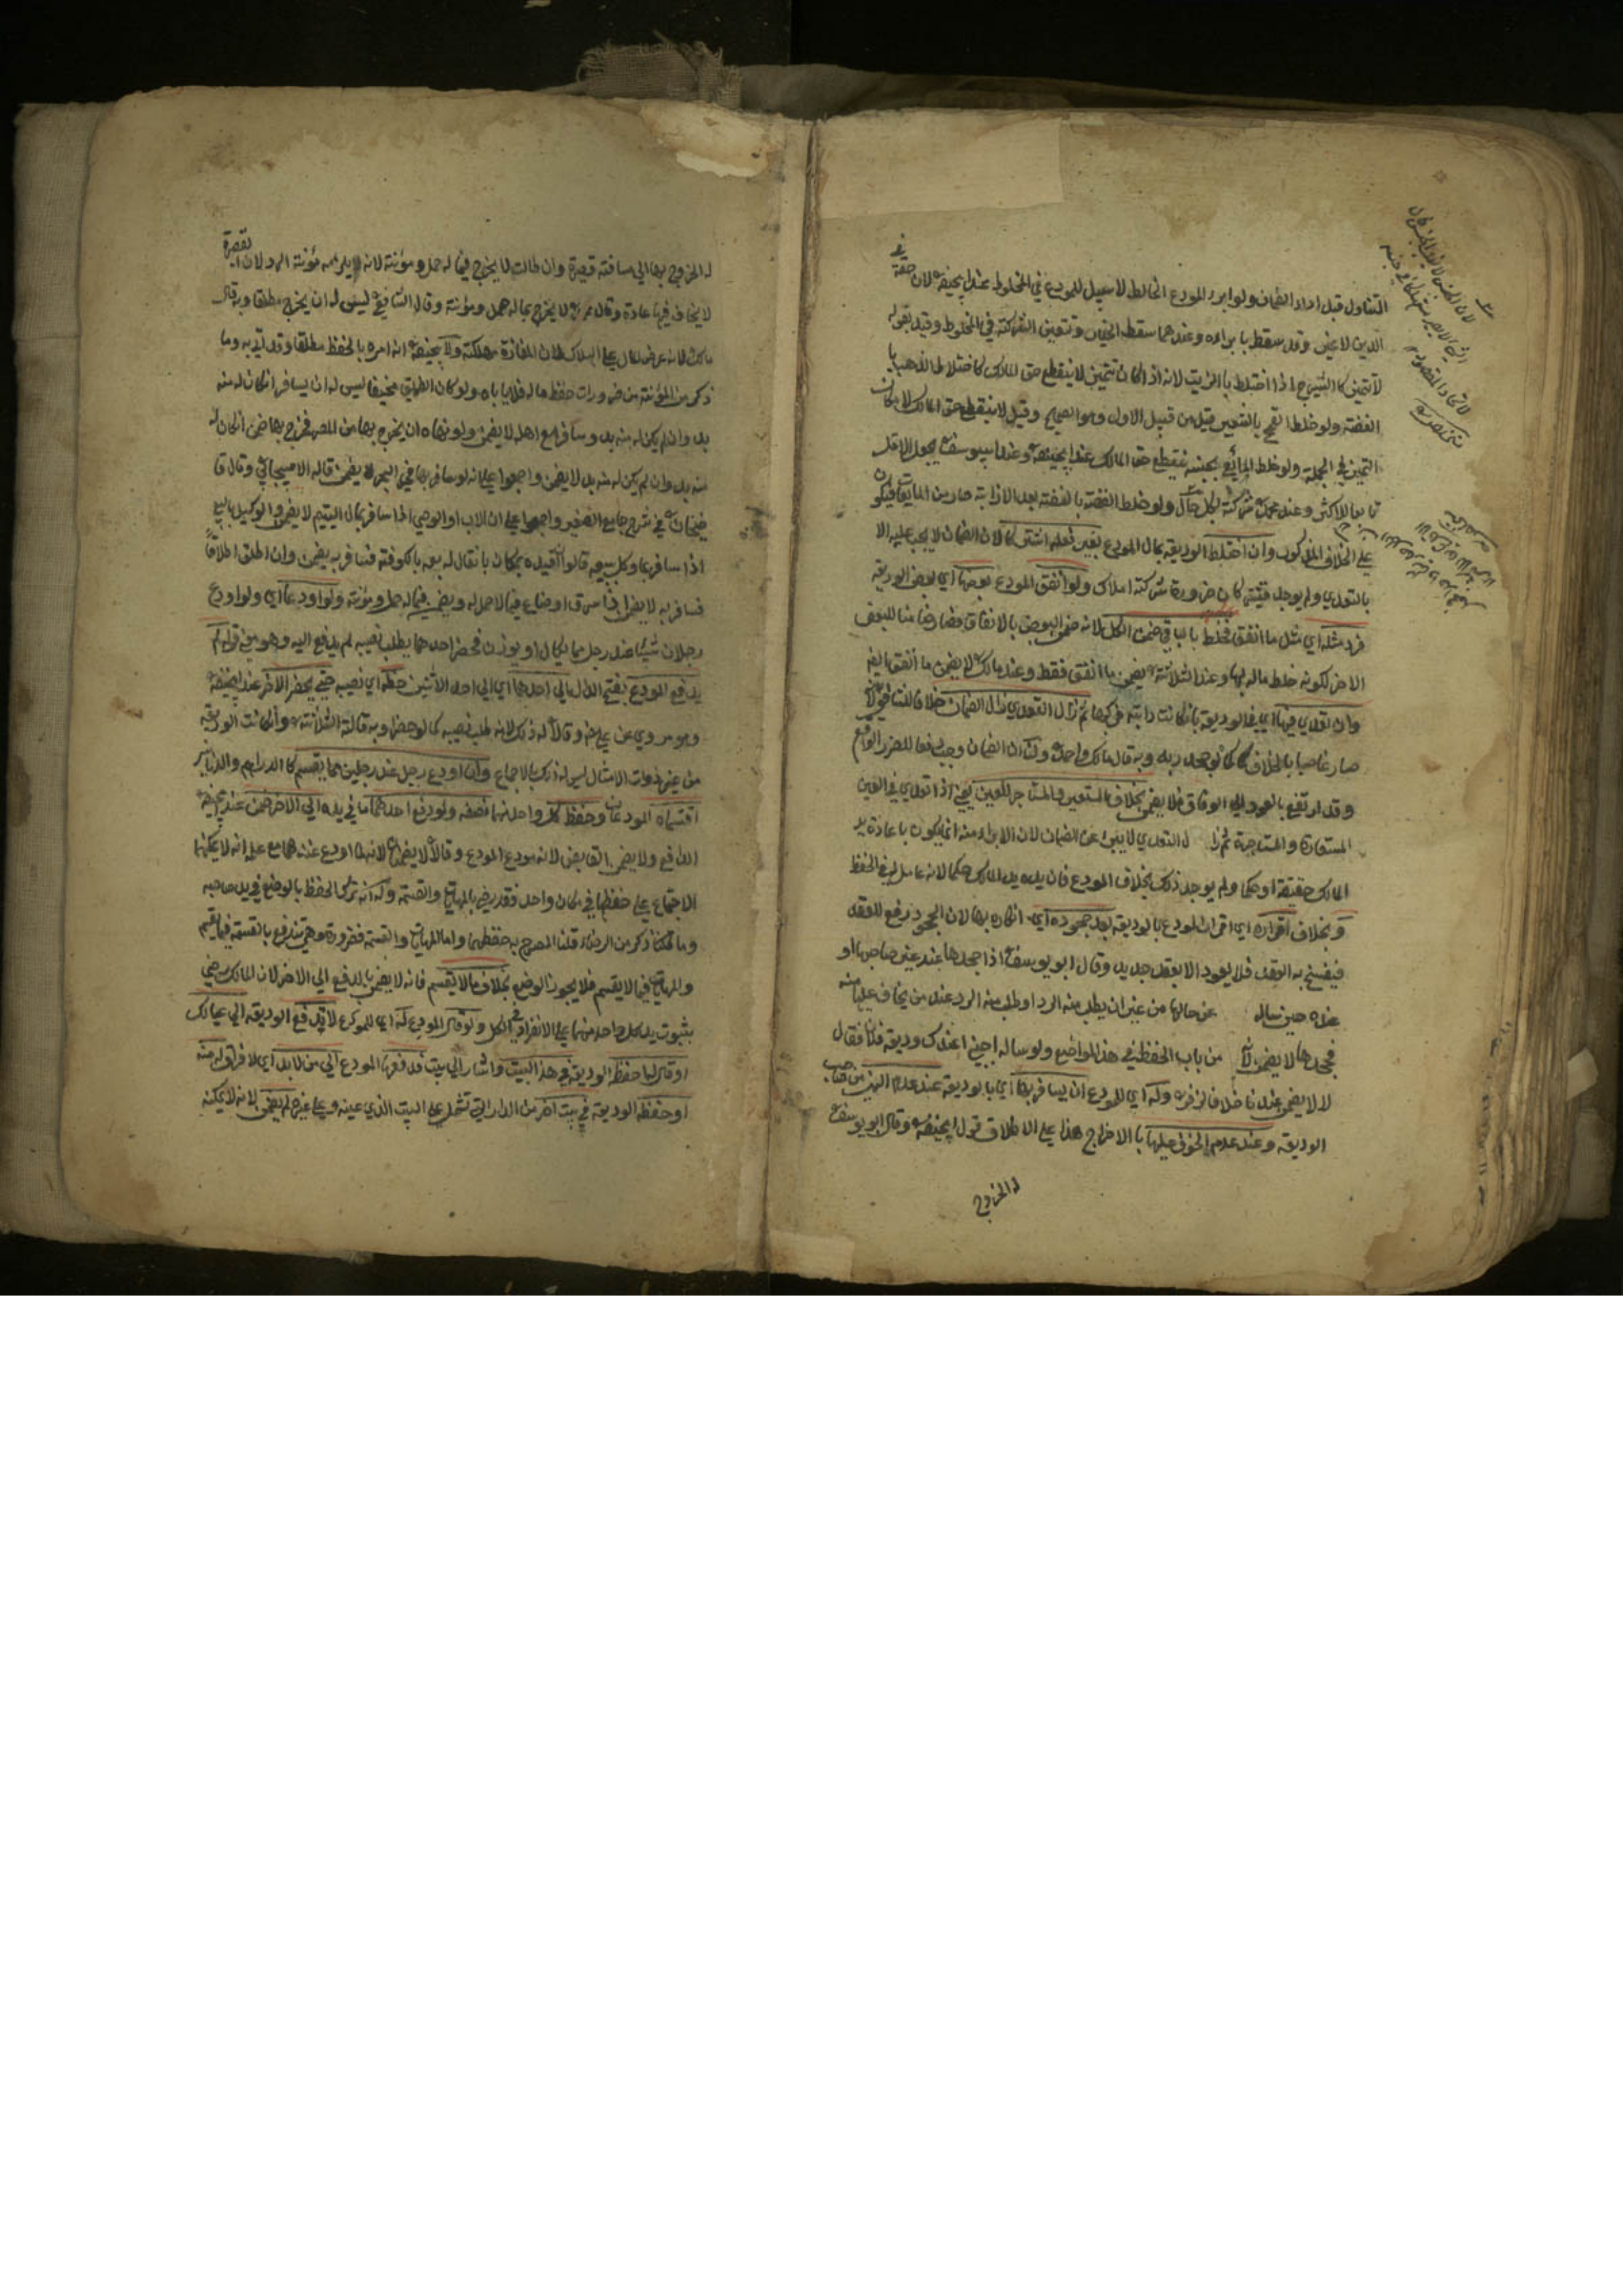 التناول قبل اداء الضمان ولو ابرء المودع الخالط لا سبيل للمودع في المخلوط عند ابيحنيفة لان حقه في
الدين لا غير وقد سقط بابراءه وعندهما سقط الخيار وتتعين الشركة في المخلوط وقيد بقوله
لا تتميز كالشيرج اذا اختلط بالزيت لانه اذا كان تتميز لا ينقطع حق المالك كاختلاط الذهب با
الفضة ولو خلط القمح بالشعير قيل من قبيل الاول وهو الصحيح وقيل لا ينقطع حق المالك لامكان
التميز في الجملة ولو خلط المائع بجنسه ينقطع حق المالك عند ابيحنيفة وعند ابييوسف يجعل الاقل
تابعا للاكثر وعند محمد شركة بكل حال ولو خلط الفضة بالفضة بعد الاذابة صار من المايعات فيكون
على الخلاف المذكور وان اختلط الوديعة بمال المودع بغير فعله اشتركا لان الضمان لا يجب عليه الا
بالتعدي ولم يوجد فيثبت كان ضرورة شركة املاك ولو انفق المودع بعضها اي بعض الوديعة
فرد مثله اي مثل ما انفق فخلط بالباقي ضمن الكل لانه ضمن البعض بالانفاق فصار ضامنا للبعض
الاخر لكونه خلط ماله بها وعند الثلاثة يضمن ما انفق فقط وعند مالك لا يضمن ما انفق ايضا
وان تعدي فيها اي في الوديعة بان كانت دابة فركبها ثم زال التعدي زال الضمان خلافا للشافعي لانه
صار غاصبا بالخلاف كما لو جحد ربه وبه قال مالك واحمد ولنا ان الضمان وجب دفعا للضرر الواقع
وقد ارتفع بالعود الي الوفاق فلا يضمن بخلاف المستعير والمستاجر للعين يعني اذا تعدي في العين
المستعارة والمستاجرة ثم زال التعدي لا يبرئ عن الضمان لان الابراء منه انما يكون باعادة يد
المالك حقيقة او حكما ولم يوجد ذلك بخلاف المودع فان يده يد المالك حكما لانه عامل له في الحفظ
وبخلاف اقراره اي اقرار المودع بالوديعة بعد جحوده اي انكاره بها لان الجحود رفع للعقد
فينفسخ به العقد فلا يعود الا بعقد جديد وقال ابو يوسف اذا جحدها عند غير صاحبها او
عنده حين ساله عن حالها من غير ان يطلب منه الرد او طلب منه الرد عند من يخاف عليها منه
فجحدها لا يضمن لانه من باب الحفظ في هذا المواضع ولو ساله اجنبي اعندك وديعة فلان فقال
لا لا يضمن عندنا خلافا لزفر وله اي للمودع ان يسافر بها اي بالوديعة عند عدم النهي من صاحب
الوديعة وعند عدم الخوف عليها بالاخراج هذا على الاطلاق قول ابيحنيفة وقال ابو يوسف
له الخروج
له الخروج بها الي مسافة قصيرة وان طالت لا يخرج فيما له حمل ومؤنة لانه يلزمه مؤنة الرد لان القصيرة
لا يخاف فيها عادة وقال محمد لا يخرج بماله حمل ومؤنة وقال الشافعي ليس له ان يخرج مطلقا وبه قال
مالك لانه عرض المال علي الهلاك لان المفازة مهلكة ولابيحنيفة انه امره بالحفظ مطلقا وقد اتي به وما
ذكر من المؤنة من ضرورات حفظ ماله فلا ياباه ولو كان الطريق مخيفا ليس له ان يسافر ان كان له منه
بد وان لم يكن له منه بد وسافر مع اهله لا يضمن ولو نهاه ان يخرج بها من المصر فخرج بها ضمن ان كان له
منه بد وان لم يكن له منه بد لا يضمن واجمعوا علي انه لو سافر بها في البحر لا يضمن قاله الاسبيجابي وقال قا
ضيخان في شرح جامع الصغير واجمعوا علي ان الاب او الوصي اذا سافر بمال اليتيم لا يضمن والوكيل بالبيع
اذا سافر بما وكل ببيعه قالوا ان قيده بمكان بان قال له بعه بالكوفة فسافر به يضمن وان اطلق اطلاقا
فسافر به لا يضمن اذا سرق او ضاع فيما لا حمل له ويضمن فيما له حمل ومؤنة ولو اودعا اي ولو اودع
رجلان شيئا عند رجل مما يكال او يوزن فحضر احدهما يطلب نصيبه لم يدفع اليه وهو معني قوله لم
يدفع المودع بفتح الدال الي احدهما اي الي احد الاثنين حظه اي نصيبه حتي يحضر الاخر عند ابيحنيفة
وهو مروي عن علي وقالا له ذلك لانه طلب نصيبه كما لو حضرا وبه قالت الثلاثة وان كانت الوديعة
من غير ذوات الامثال ليس له ذلك بالاجماع وان اودع رجل عند رجلين مما يقسم كالدراهم والدنانير
اقتسماه المودعان وحفظ كل واحد منهما نصفه ولو دفع احدهما ما في يده الي الاخر ضمن عند ابيحنيفة
الدافع ولا يضمن القابض لانه مودع المودع وقالا لا يضمن لانه لما اودع عندهما مع علمه انه لا يمكنهما
الاجتماع علي حفظها في مكان واحد فقد رضي بالمهاياة والقسمة وله انه ترك الحفظ بالوضع في يد صاحبه
وما ذكر من الرضاء قلنا المصرح به حفظهما واما المهاياة والقسمة فضرورة وهي تندفع بالقسمة فيما يقسم
والمهاياة فيما لا يقسم فلا يجوز الوضع بخلاف ما لا يقسم فانه لا يضمن بالدفع الي الاخر لان المالك رضي
بثبوت يد كل واحد منهما علي الانفراد في الكل ولو قال المودع له اي للمودع لا تدفع الوديعة الي عيالك
او قال له احفظ الوديعة في هذا البيت واشار الي بيت فدفعها المودع الي من لا بد اي لا فراق له منه
او حفظه الوديعة في بيت اخر من الدار التي تشتمل علي البيت الذي عينه وعلي غيره لم يضمن لانه لا يمكنه